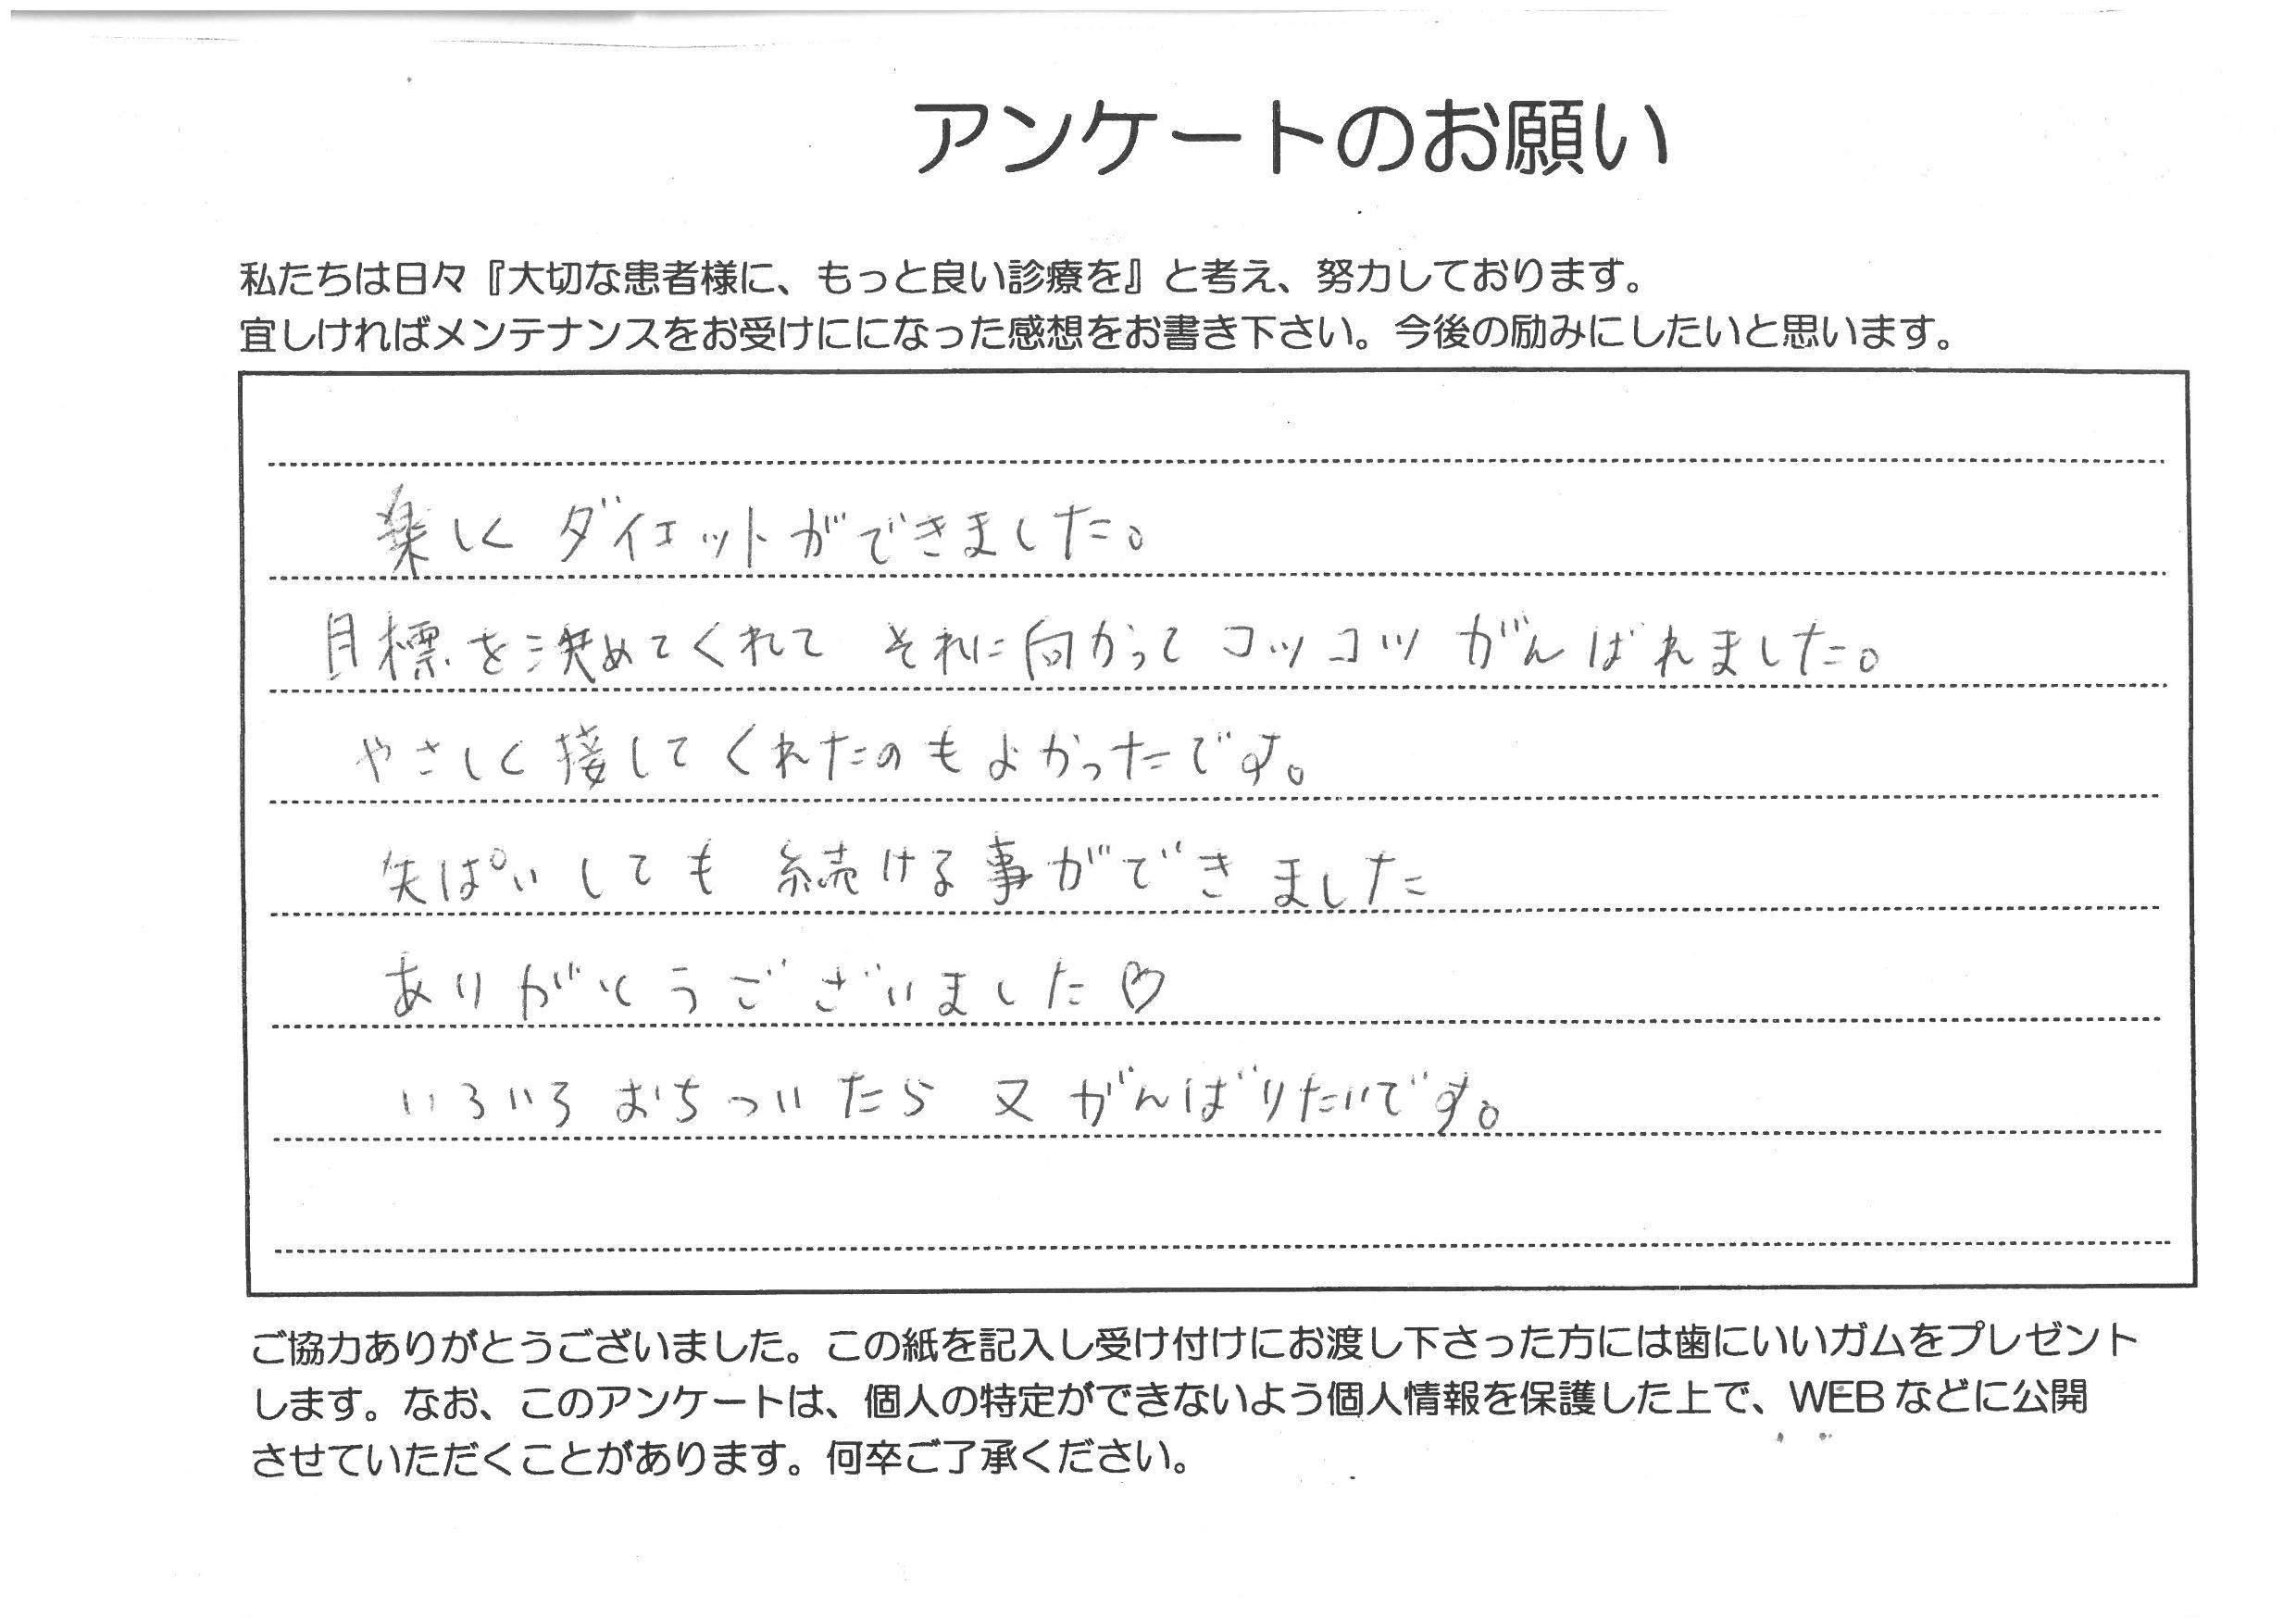 アンケートのお願い
私たちは日々『大切な患者様に、もっと良い診療を』と考え、努力しております。
宜しければメンテナンスをお受けにになった感想をお書き下さい。今後の励みにしたいと思います。
楽しく ダイエットができました。
目標を決めてくれて それに向かって コツコツ がんばれました。
やさしく接してくれたのもよかったです。
失ぱいしても 続ける事ができました
ありがとうございました♡
いろいろ おちついたら 又 がんばりたいです。
ご協力ありがとうございました。この紙を記入し受け付けにお渡し下さった方には歯にいいガムをプレゼント
します。なお、このアンケートは、個人の特定ができないよう個人情報を保護した上で、WEBなどに公開
させていただくことがあります。何卒ご了承ください。